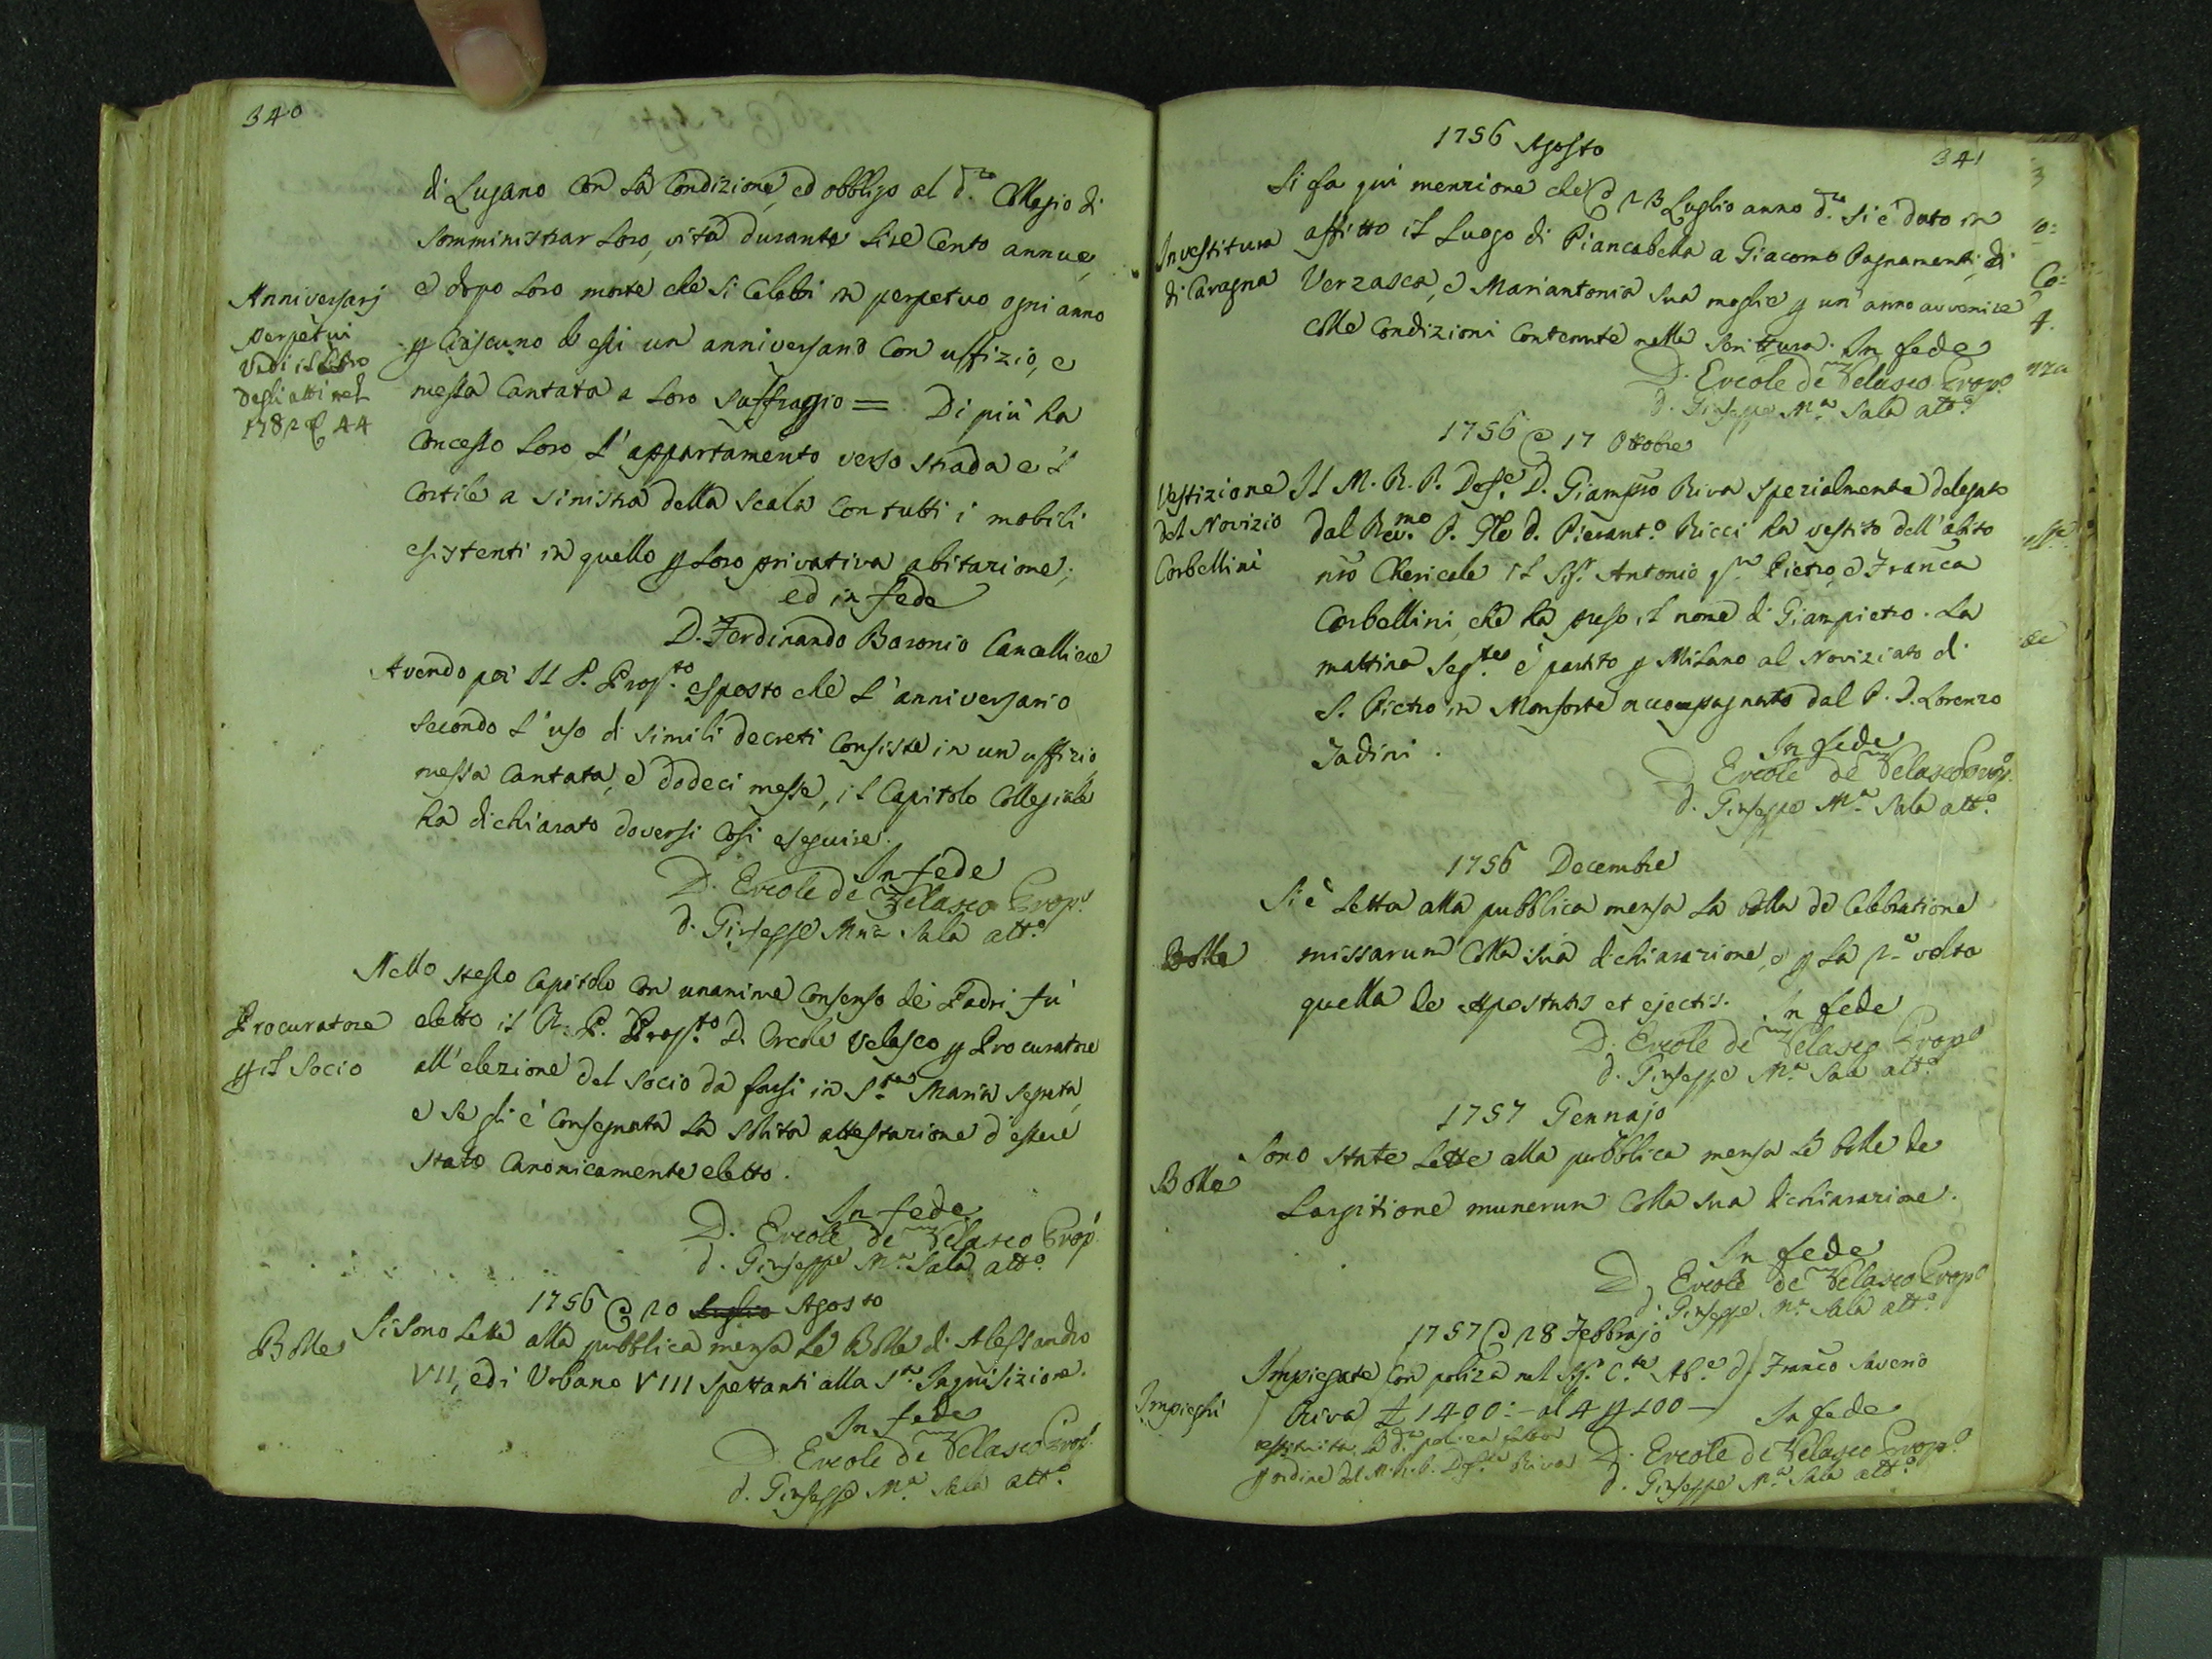 340
di Lugano con la condizione, ed obbligo al d.to Collegio di
somministrar loro, vita durante lire cento annue,
e dopo loro morte che si celebri in perpetuo ogni anno
Anniversarj
perpetui
Vedi il Libro
degli atti nel
1782 44
p ciascuno di essi un anniversario con uffizio, e
messa cantata a loro suffraggio = Di più ha
concesso loro l'appartamento verso strada e 'l
cortile a sinistra della scala con tutti i mobili
esistenti in quello p loro privativa abitazione;
ed in fede
D. Ferdinando Baronio Cancelliere
Avendo poi Il P. Prop.to esposto che l'anniversario
secondo l'uso di simili decreti consiste in un uffizio,
messa cantata, e dodeci messe, il Capitolo Collegiale
ha dichiarato doversi così eseguire.
In fede
D. Ercole de Velasco Prop.o
d. Giuseppe Mria Sala att.o
Nello stesso Capitolo con unanime consenso de' Padri fu
Procuratore
p il socio
eletto il R. P. Prop.to D. Ercole Velasco p Procuratore
all'elezione del socio da farsi in S.ta Maria Segreta,
e se gli è consegnata la solita attestazione d'essere
stato canonicamente eletto.
In fede
D. Ercole de Velasco Prop.
d. Giuseppe M.a Sala att.o
1756 @ 20 Luglio Agosto
Bolle
Si sono lette alla pubblica mensa le Bolle di Alessandro
VII, ed i Urbano VIII spettanti alla S.ta Inquisizione.
In fede
D. Ercole de Velasco Prop.
d. Giuseppe M.a Sala att.o
1756 Agosto
341
Si fa qui menzione che @ 23 Luglio anno d.to si è dato in
Investitura
di Caragna
affitto il luogo di Piancabella a Giacomo Pagnamenti, di
Verzasca, e Mariantonia sua moglie p un' anno avvenire
colle condizioni contenute nella scrittura. In fede
D. Ercole de Velasco Prop.o
d. Giuseppe M.a Sala att.o
1756 @ 17 Ottobre
Vestizione
del Novizio
Corbellini
Il M. R. P. Def.e D. Giampro Riva spezialmente delegato
dal Rev.mo P. Gle d. Pierant.o Ricci ha vestito dell'abito
nro Chericale il Sig. Antonio q.m Pietro, e Franca
Corbellini, che ha preso il nome di Giampietro. La
mattina seg.te è partito p Milano al Noviziato di
S. Pietro in Monforte accompagnato dal P. D. Lorenzo
Jadini.
In fede
D. Ercole de Velasco Prop.
d. Giuseppe M.a Sala att.o
1756 Decembre
Si è letta alla pubblica mensa la Bolla de Celebratione
Bolle
missarum colla sua dichiarazione, e p la 2.a volta
quella de Apostatis et ejectis. In fede
D. Ercole de Velasco Prop.o
d. Giuseppe M.a Sala att.o
1757 Gennajo
Sono state lette alla pubblica mensa le Bolle de
Bolle
Largitione munerum colla sua dichiarazione.
In fede
D. Ercole de Velasco Prop.o
d. Giuseppe M.a Sala att.o
1757 @ 28 Febbrajo
Impieghi
Impiegate con poliza nel Sig. C.te Ab.e d. Franco Saverio
Riva £ 1400:- al 4 p 100 - In fede
restituita la d.a poliza
p ordine del M. R. P. Def.re Riva
D. Ercole de Velasco Prop.o
d. Giuseppe M.a Sala att.o